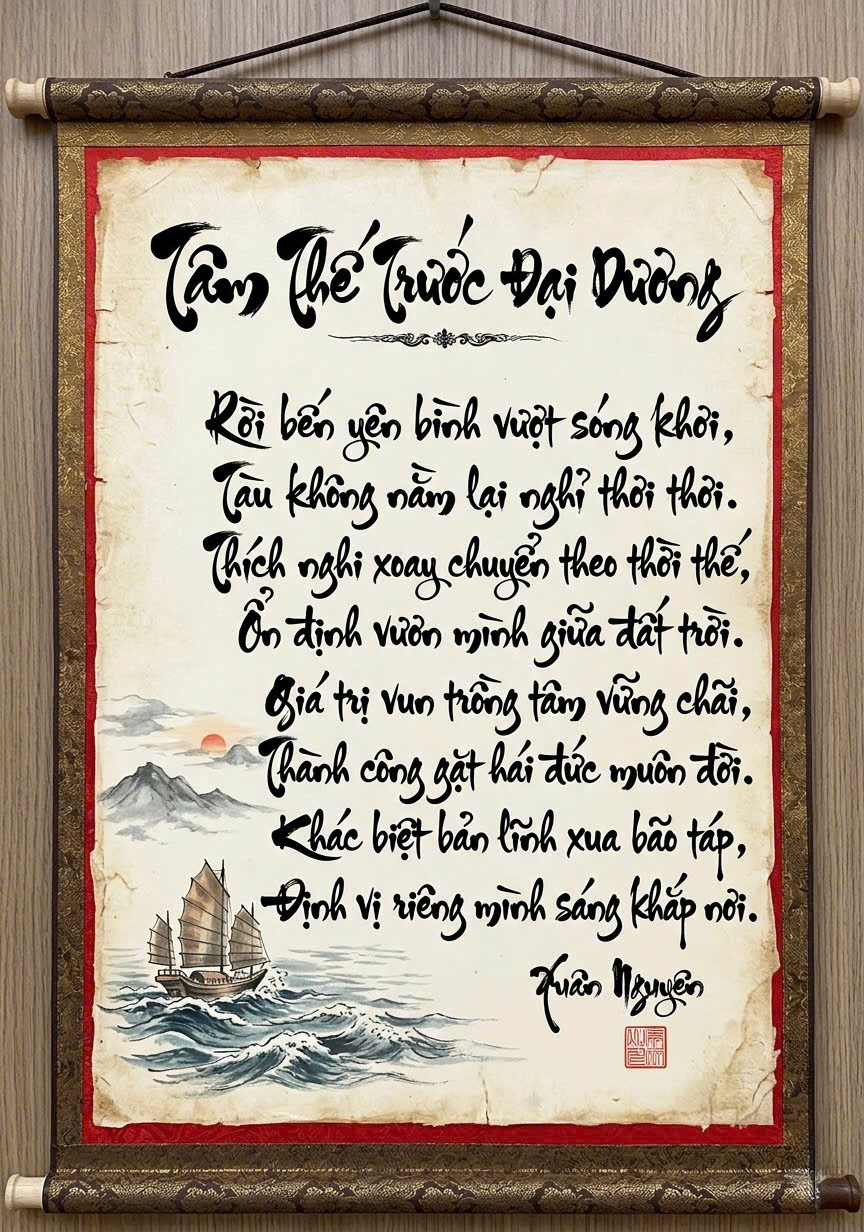 Tâm Thế Trước Đại Dương
Rời bến yên bình vượt sóng khơi,
Tàu không nằm lại nghỉ thơi thơi.
Thích nghi xoay chuyển theo thời thế,
Ổn định vươn mình giữa đất trời.
Giá trị vun trồng tâm vững chãi,
Thành công gặt hái đức muôn đời.
Khác biệt bản lĩnh xua bão táp,
Định vị riêng mình sáng khắp nơi.
Xuân Nguyên